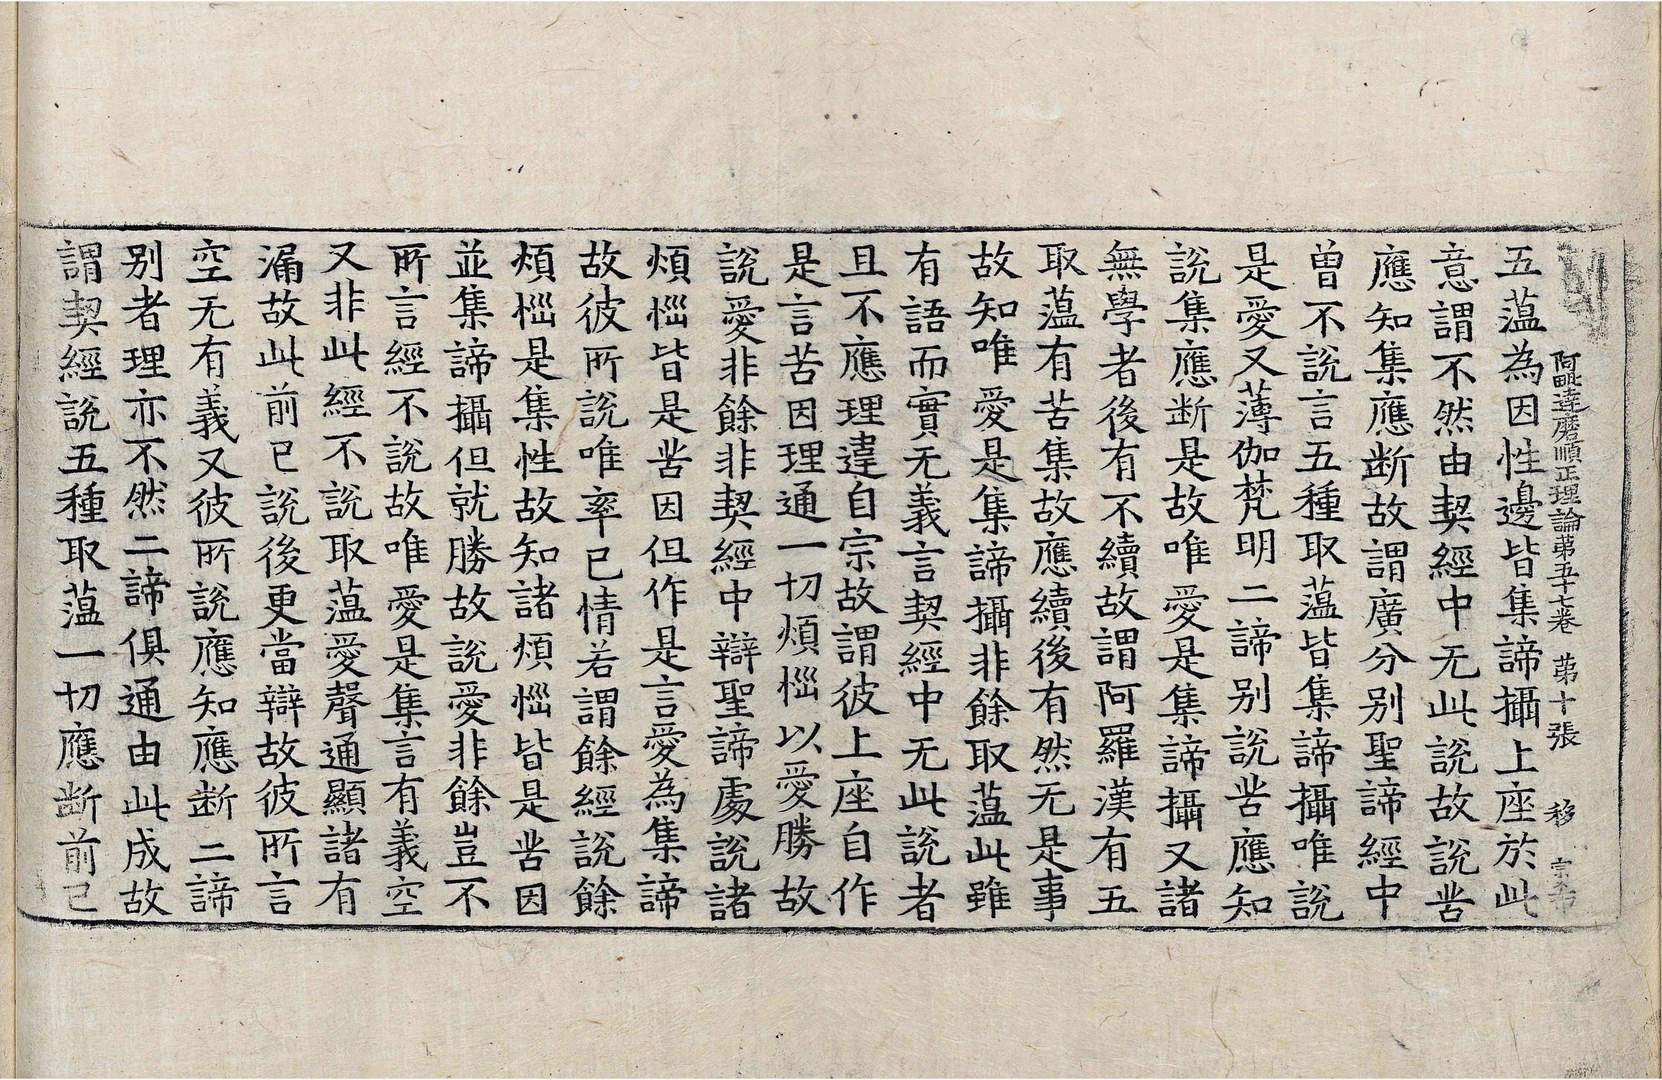 阿毗達磨順正理論第五十七卷　第十張　移　宗布
五蕰為因性邊皆集諦攝上座於此
意謂不然由契經中无此說故說苦
應知集應断故謂廣分别聖諦經中
曾不說言五種取蕰皆集諦攝唯說
是愛又薄伽梵明二諦别說苦應知
說集應断是故唯愛是集諦攝又諸
無學者後有不續故謂阿羅漢有五
取蕰有苦集故應續後有然无是事
故知唯愛是集諦攝非餘取蕰此雖
有語而實无義言契經中无此說者
且不應理違自宗故謂彼上座自作
是言苦因理通一切煩惱以愛勝故
說愛非餘非契經中辯聖諦處說諸
煩惱皆是苦因但作是言愛為集諦
故彼所說唯率已情若謂餘經說餘
煩惱是集性故知諸煩惱皆是苦因
並集諦攝但就勝故說愛非餘豈不
所言經不說故唯愛是集言有義空
又非此經不說取蕰愛聲通顯諸有
漏故此前已說後更當辯故彼所言
空无有義又彼所說應知應断二諦
别者理亦不然二諦俱通由此成故
謂契經說五種取蕰一切應断前已